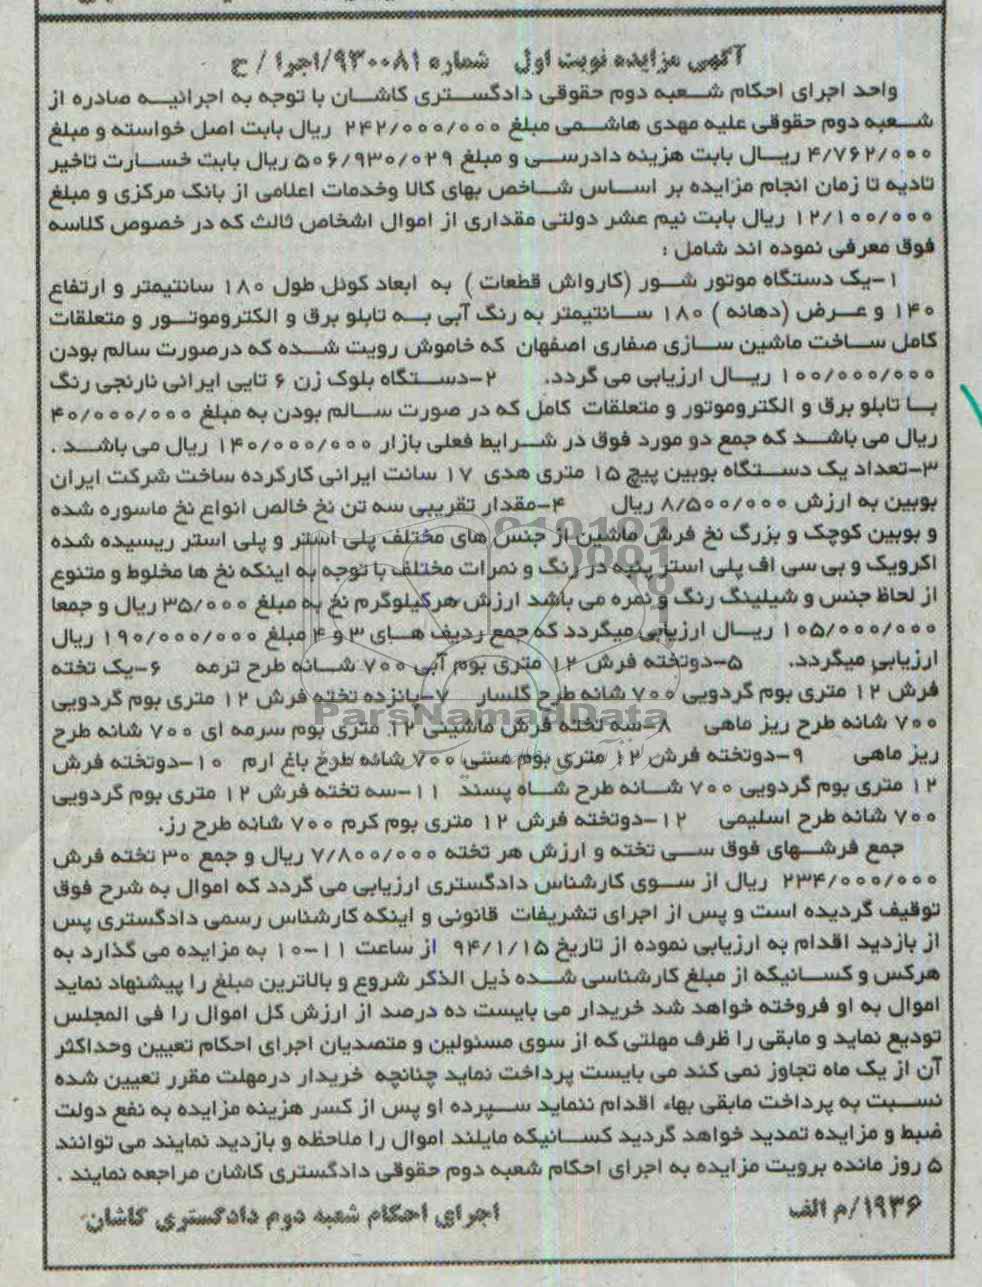 آگهی مزایده نوبت اول شماره ۹۳۰۰۸۱/اجرا / ح
واحد اجرای احکام شعبه دوم حقوقی دادگستری کاشان با توجه به اجرائیه صادره از
شعبه دوم حقوقی علیه مهدی هاشمی مبلغ ۲۴۲/۰۰۰/۰۰۰ ریال بابت اصل خواسته و مبلغ
۴/۷۶۲/۰۰۰ ریال بابت هزینه دادرسی و مبلغ ۵۰۶/۹۳۰/۰۲۹ ریال بابت خسارت تاخیر
تادیه تا زمان انجام مزایده بر اساس شاخص بهای کالا وخدمات اعلامی از بانک مرکزی و مبلغ
۱۲/۱۰۰/۰۰۰ ریال بابت نیم عشر دولتی مقداری از اموال اشخاص ثالث که در خصوص کلاسه
فوق معرفی نموده اند شامل :
۱-یک دستگاه موتور شور (کارواش قطعات ) به ابعاد کوئل طول ۱۸۰ سانتیمتر و ارتفاع
۱۴۰ و عرض (دهانه ) ۱۸۰ سانتیمتر به رنگ آبی به تابلو برق و الکتروموتور و متعلقات
کامل ساخت ماشین سازی صفاری اصفهان که خاموش رویت شده که درصورت سالم بودن
۱۰۰/۰۰۰/۰۰۰ ریال ارزیابی می گردد. ۲-دستگاه بلوک زن ۶ تایی ایرانی نارنجی رنگ
با تابلو برق و الکتروموتور و متعلقات کامل که در صورت سالم بودن به مبلغ ۴۰/۰۰۰/۰۰۰
ریال می باشد که جمع دو مورد فوق در شرایط فعلی بازار ۱۴۰/۰۰۰/۰۰۰ ریال می باشد .
۳-تعداد یک دستگاه بوبین پیچ ۱۵ متری هدی ۱۷ سانت ایرانی کارکرده ساخت شرکت ایران
بوبین به ارزش ۸/۵۰۰/۰۰۰ ریال ۴-مقدار تقریبی سه تن نخ خالص انواع نخ ماسوره شده
و بوبین کوچک و بزرگ نخ فرش ماشین از جنس های مختلف پلی استر و پلی استر ریسیده شده
اکرویک و بی سی اف پلی استر پنبه در رنگ و نمرات مختلف با توجه به اینکه نخ ها مخلوط و متنوع
از لحاظ جنس و شیلینگ رنگ و نمره می باشد ارزش هرکیلوگرم نخ به مبلغ ۳۵/۰۰۰ ریال و جمعا
۱۰۵/۰۰۰/۰۰۰ ریال ارزیابی میگردد که جمع ردیف های ۳ و ۴ مبلغ ۱۹۰/۰۰۰/۰۰۰ ریال
ارزیابی میگردد. ۵-دوتخته فرش ۱۲ متری بوم آبی ۷۰۰ شانه طرح ترمه ۶-یک تخته
فرش ۱۲ متری بوم گردویی ۷۰۰ شانه طرح گلسار ۷-پانزده تخته فرش ۱۲ متری بوم گردویی
۷۰۰ شانه طرح ریز ماهی ۸-سه تخته فرش ماشینی ۱۲ متری بوم سرمه ای ۷۰۰ شانه طرح
ریز ماهی ۹-دوتخته فرش ۱۲ متری بوم مسی ۷۰۰ شانه طرح باغ ارم ۱۰-دوتخته فرش
۱۲ متری بوم گردویی ۷۰۰ شانه طرح شاه پسند ۱۱-سه تخته فرش ۱۲ متری بوم گردویی
۷۰۰ شانه طرح اسلیمی ۱۲-دوتخته فرش ۱۲ متری بوم کرم ۷۰۰ شانه طرح رز.
جمع فرشهای فوق سی تخته و ارزش هر تخته ۷/۸۰۰/۰۰۰ ریال و جمع ۳۰ تخته فرش
۲۳۴/۰۰۰/۰۰۰ ریال از سوی کارشناس دادگستری ارزیابی می گردد که اموال به شرح فوق
توقیف گردیده است و پس از اجرای تشریفات قانونی و اینکه کارشناس رسمی دادگستری پس
از بازدید اقدام به ارزیابی نموده از تاریخ ۹۴/۱/۱۵ از ساعت ۱۱-۱۰ به مزایده می گذارد به
هرکس و کسانیکه از مبلغ کارشناسی شده ذیل الذکر شروع و بالاترین مبلغ را پیشنهاد نماید
اموال به او فروخته خواهد شد خریدار می بایست ده درصد از ارزش کل اموال را فی المجلس
تودیع نماید و مابقی را ظرف مهلتی که از سوی مسئولین و متصدیان اجرای احکام تعیین وحداکثر
آن از یک ماه تجاوز نمی کند می بایست پرداخت نماید چنانچه خریدار درمهلت مقرر تعیین شده
نسبت به پرداخت مابقی بهاء اقدام ننماید سپرده او پس از کسر هزینه مزایده به نفع دولت
ضبط و مزایده تمدید خواهد گردید کسانیکه مایلند اموال را ملاحظه و بازدید نمایند می توانند
۵ روز مانده برویت مزایده به اجرای احکام شعبه دوم حقوقی دادگستری کاشان مراجعه نمایند .
۱۹۳۶/م الف اجرای احکام شعبه دوم دادگستری کاشان
ParsNamadData